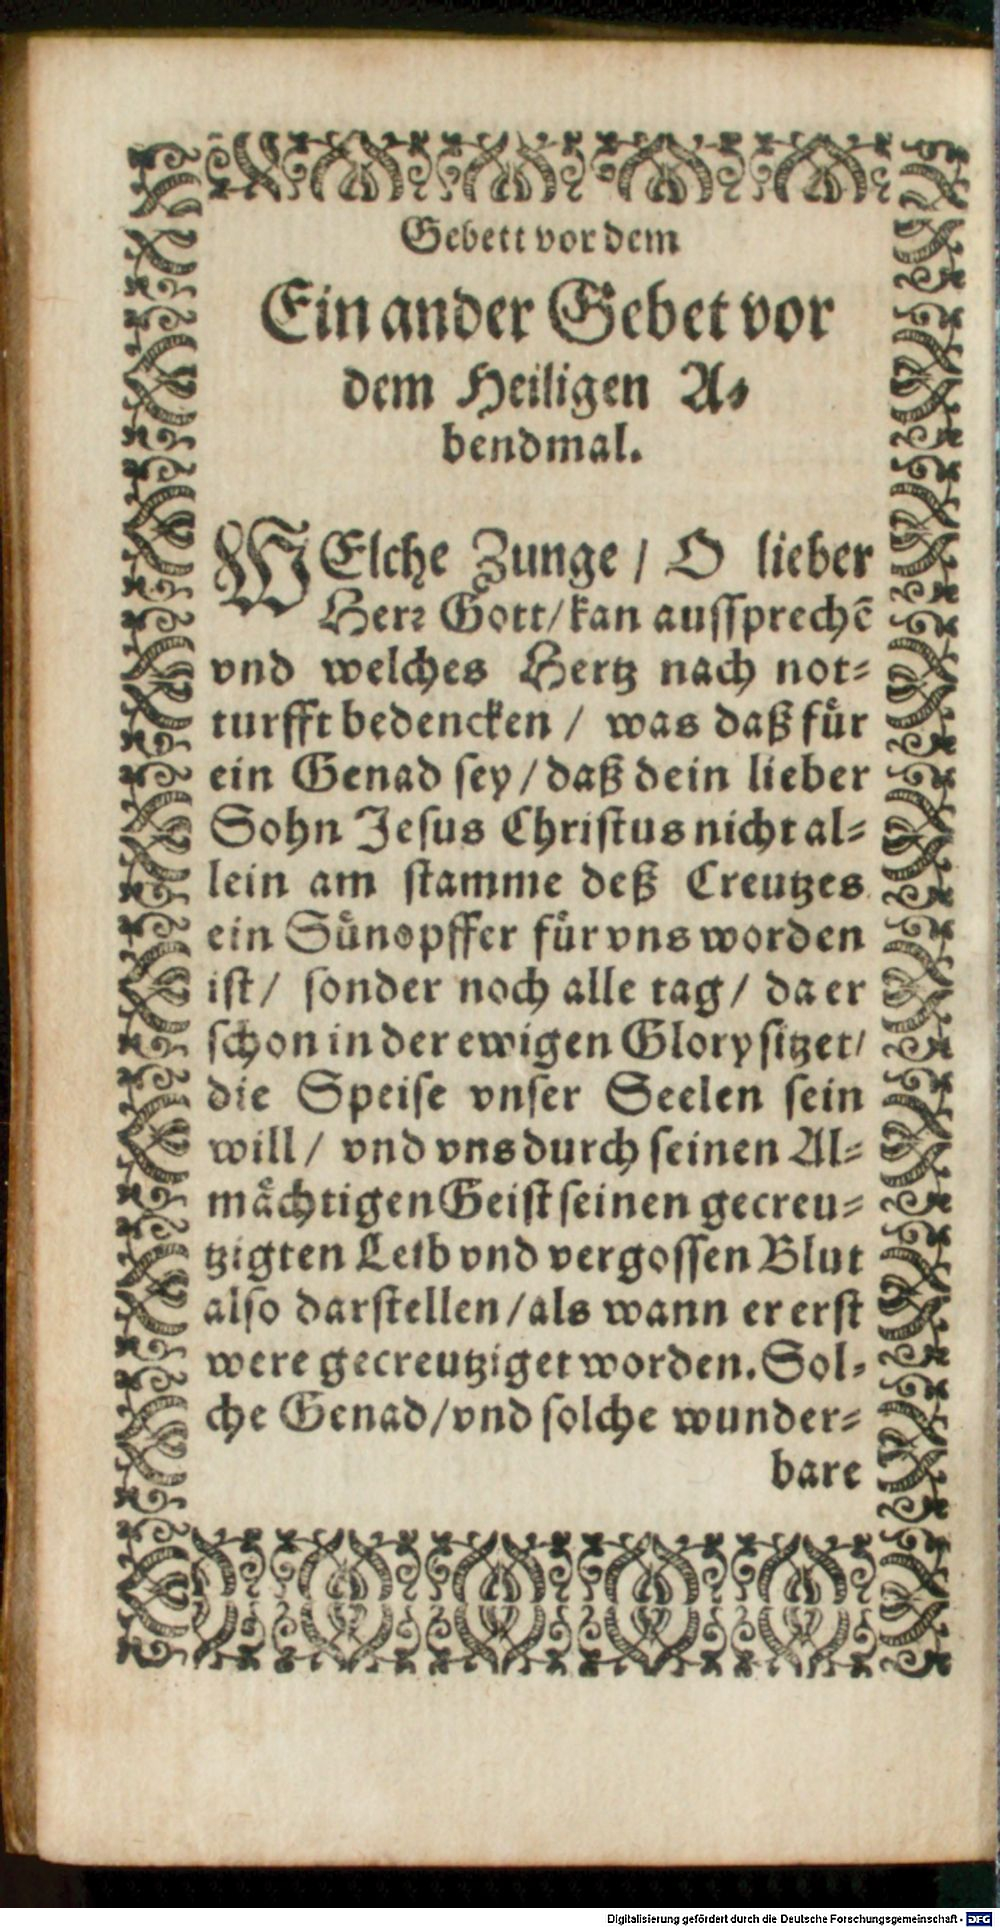 Gebett vor dem
Ein ander Gebet vor
dem Heiligen A⸗
bendmal.
WElche Zunge / O lieber
Herꝛ Gott/kan ausſprechē
vnd welches Hertz nach not⸗
turfft bedencken / was daß fuͤr
ein Genad ſey/daß dein lieber
Sohn Jeſus Chriſtus nicht al⸗
lein am ſtamme deß Creutzes
ein Suͤnopffer fuͤr vns worden
iſt/ ſonder noch alle tag/ da er
ſchon in der ewigen Glory ſitzet/
die Speiſe vnſer Seelen ſein
will/ vnd vns durch ſeinen Al⸗
maͤchtigen Geiſt ſeinen gecreu⸗
tzigten Leib vnd vergoſſen Blut
alſo darſtellen/als wann er erſt
were gecreutziget worden. Sol⸗
che Genad/vnd ſolche wunder⸗
bare
Digitalisierung gefördert durch die Deutsche Forschungsgemeinschaft - DFG